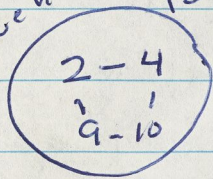 2 - 4
9 - 10